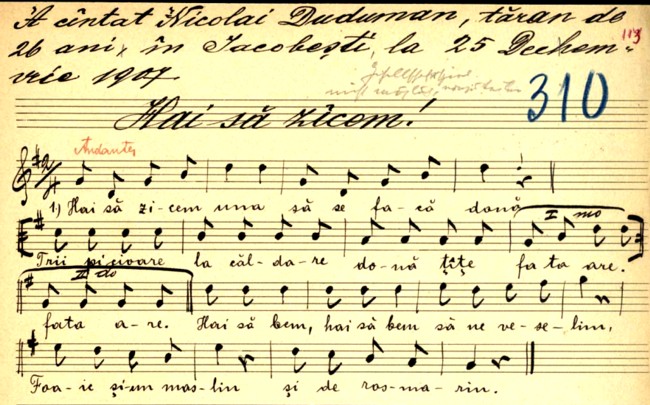 A cîntat Nicolai Duduman, țăran de
26 ani, în Iacobești, la 25 Dechem-
vrie 1907
113
310
Hai să zicem!
Andante
1) Hai să zi-cem una să se fa-că două
I mo
Trii picioare la căl-da-re do-uă țîțe fa ta are.
II do
fata a-re. Hai să bem, hai să bem să ne ve-se-lim,
Foa-ie și-un mas-lin și de ros-ma-rin.